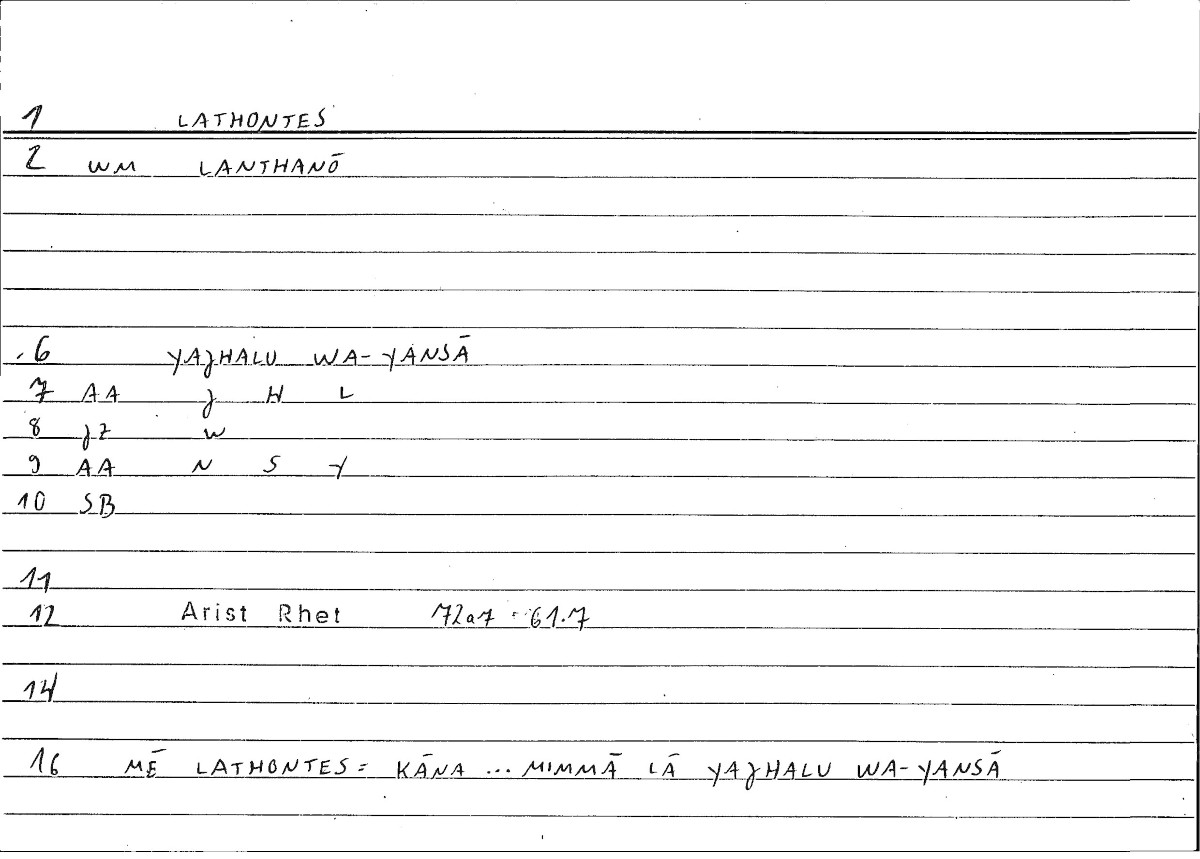 1 LATHONTES
2 WM LANTHANŌ
.6 YAJHALU WA-YANSĀ
7 AA J H L
8 JZ W
9 AA N S Y
10 SB
11
12 Arist Rhet 72a7 : 61.7
14
16 MĒ LATHONTES = KĀNA ... MIMMĀ LĀ YAJHALU WA-YANSĀ